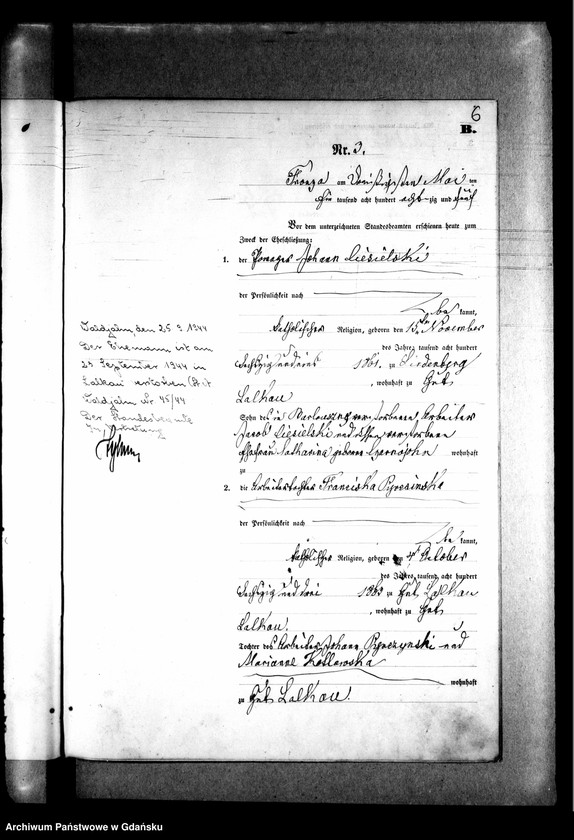 6
B.
Nr. 3.
Fronza am dreißigsten Mai
tausend acht hundert achtzig und fünf
Vor dem unterzeichneten Standesbeamten erschienen heute zum
Zweck der Eheschließung:
1. der Johann Ciesielski
der Persönlichkeit nach
be kannt,
katholischer Religion, geboren den 15ten November
des Jahres tausend acht hundert
sechszig und eins 1861 zu
, wohnhaft zu Gut
Lalkau
Sohn des in verstorbenen Arbeiter
Jacob Ciesielski und dessen verstorbene
Ehefrau Catharina geborene wohnhaft
zu
2. die Arbeitertochter Franciska
der Persönlichkeit nach
be kannt,
katholischer Religion, geboren den 4 October
des Jahres tausend acht hundert
sechszig und drei 1863 zu Gut Lalkau
, wohnhaft zu Gut
Lalkau.
Tochter des Arbeiter Johann und
Marianne Koslowska
wohnhaft
zu Gut Lalkau.
den 25 9 1944
Der Ehemann ist am
23 September 1944 in
Lalkau verstorben (St. A.
Nr 45/44
Der Standesbeamte
In Vertretung
Archiwum Państwowe w Gdańsku